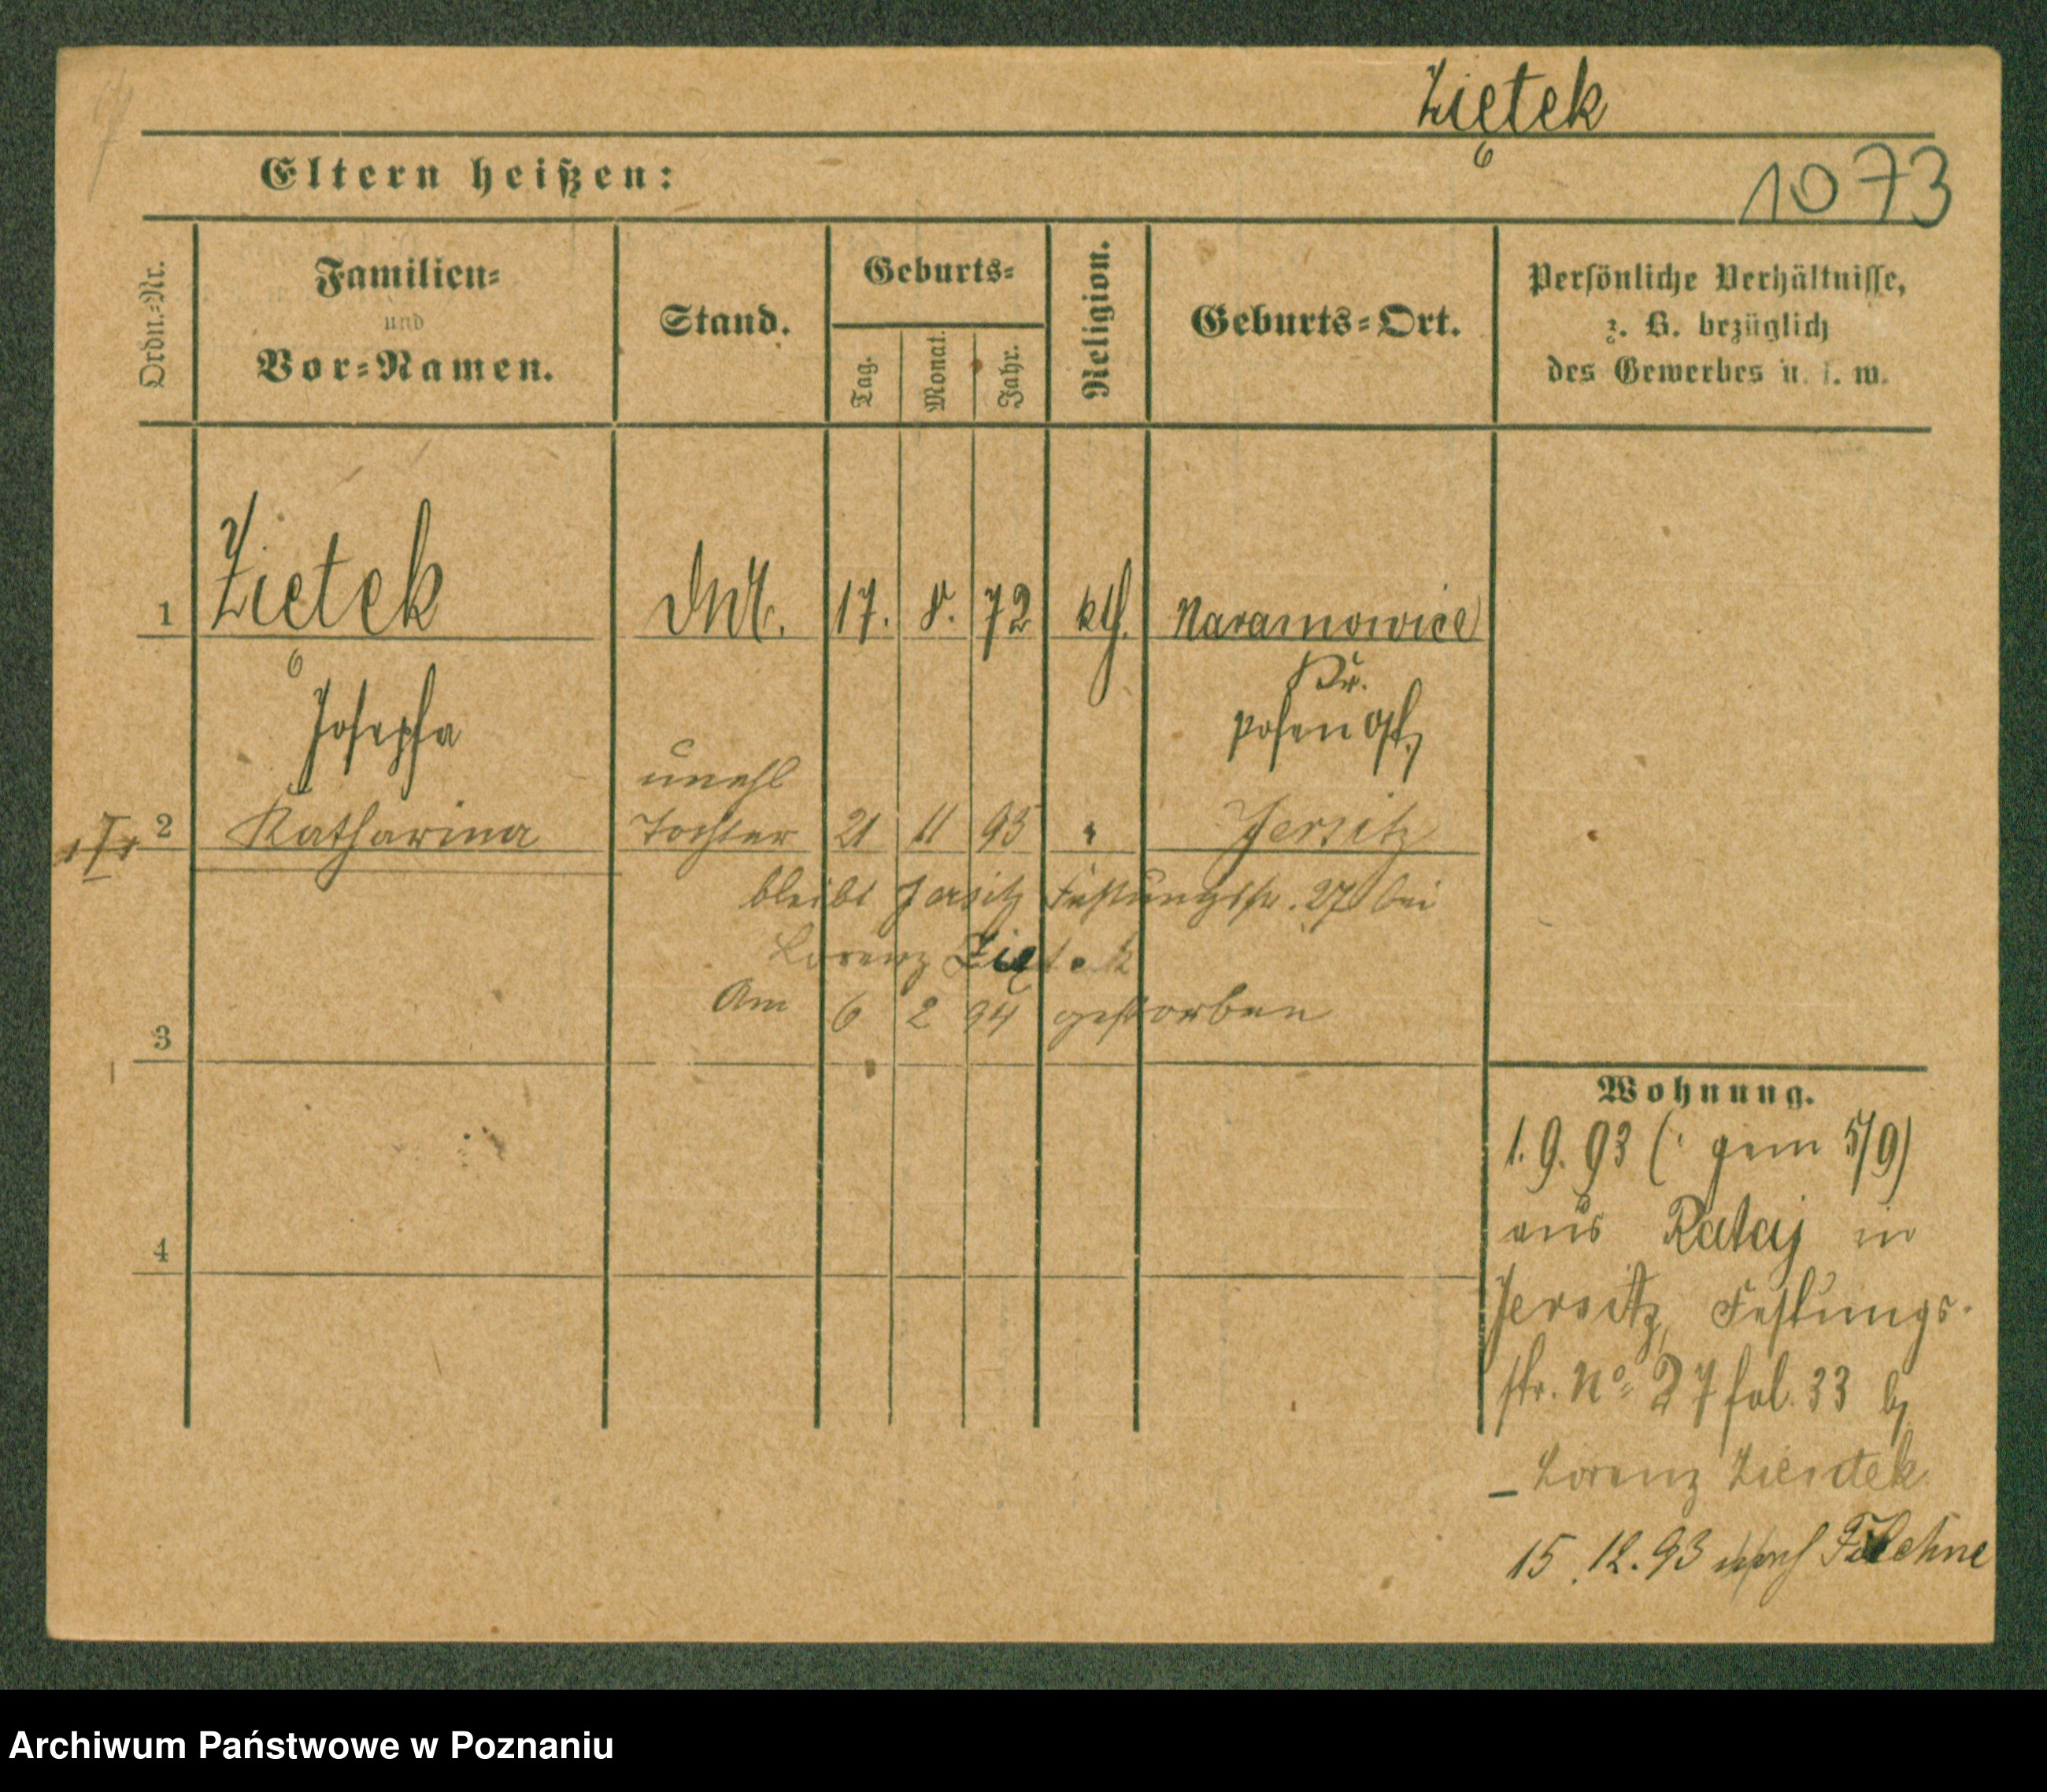 Ziętek
1073
Eltern heißen:
Ordn.-Nr.
Familien-
und
Vor-Namen.
Stand.
Geburts-
Tag.
Monat.
Jahr.
Religion.
Geburts-Ort.
Persönliche Verhältnisse,
z. B. bezüglich
des Gewerbes u. s. w.
1 Ziętek 17. 8. 72 kth. Naramowice
Kr.
Josepha Posen Ost,
unehl
2 Katharina Tochter 21 11 93 " Jersitz
bleibt Jersitz Festungsstr. 27 bei
Lorenz Ziętek
Am 6 2 94 gestorben
3
4
Wohnung.
1. 9. 93 (gem 5/9)
aus Rataj in
Jersitz, Festungs-
str. No 27 fol. 33 b/
Lorenz Zientek
15.12.93 nach Filehne
Archiwum Państwowe w Poznaniu